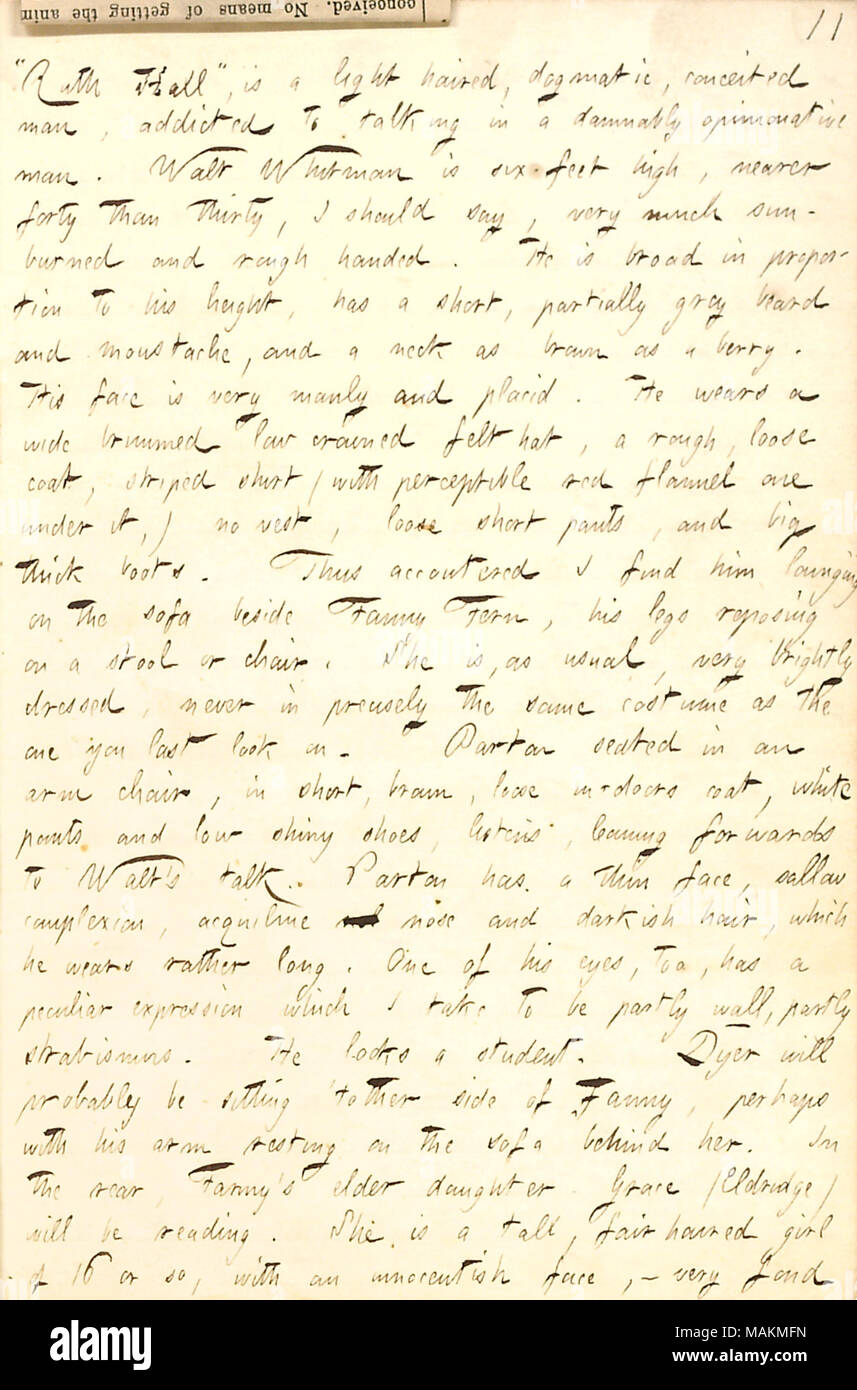 conceived. No means of getting the anim
11
"Ruth Hall", is a light haired, dogmatic, conceited
man, addicted to talking in a damnably opinionative
man. Walt Whitman is six feet high, nearer
forty than thirty, I should say, very much sun-
burned and rough handed. He is broad in propor-
tion to his height, has a short, partially grey beard
and moustache, and a neck as brown as a berry.
His face is very manly and placid. He wears a
wide brimmed low crowned felt hat, a rough, loose
coat, striped shirt (with perceptible red flannel one
under it,) no vest, loose short pants, and big
thick boots. Thus accoutered I find him lounging
on the sofa beside Fanny Fern, his legs reposing
on a stool or chair. She is, as usual, very brightly
dressed, never in precisely the same costume as the
one you last look on. Parton seated in an
arm chair, in short, brown, loose in-doors coat, white
pants and low shiny shoes, listens, leaning forwards
to Walt's talk. Parton has a thin face, sallow
complexion, acquiline nose and darkish hair, which
he wears rather long. One of his eyes, too, has a
peculiar expression which I take to be partly wall, partly
strabismus. He looks a student. Dyer will
probably be sitting 'tother side of Fanny, perhaps
with his arm resting on the sofa behind her. In
the rear, Fanny's elder daughter Grace (Eldredge)
will be reading. She is a tall, fair haired girl
of 16 or so, with an innocentish face, – very fond
alamy
Image ID: MAKMFN
www.alamy.com